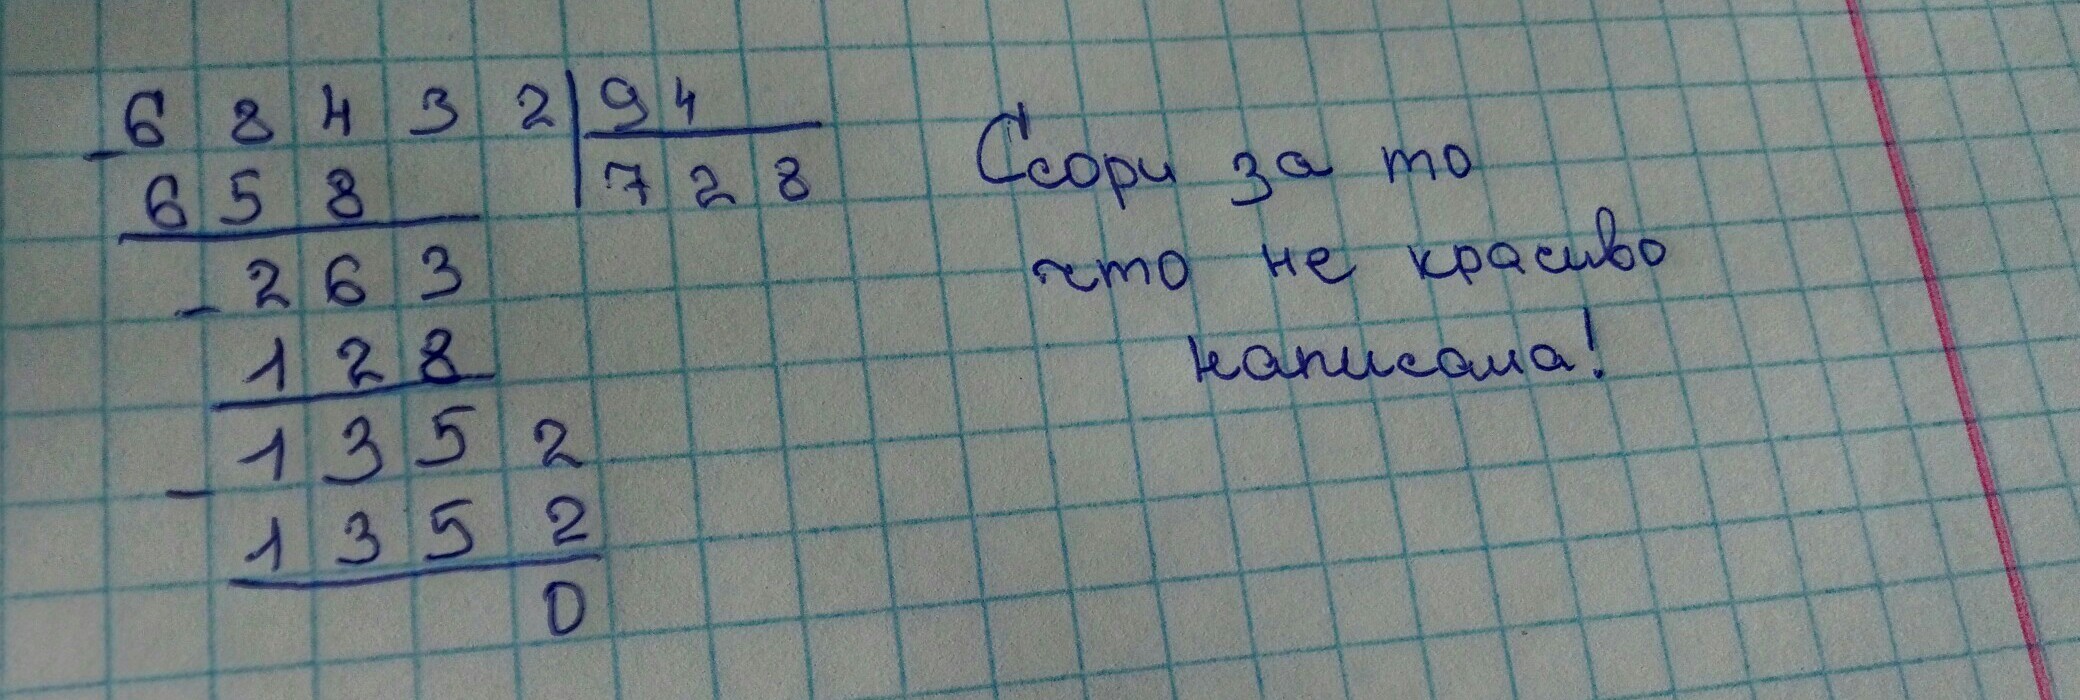 68432 | 94
- 658 | 728
- 263
128
- 1352
1352
0
Ссори за то
что не красиво
написала!